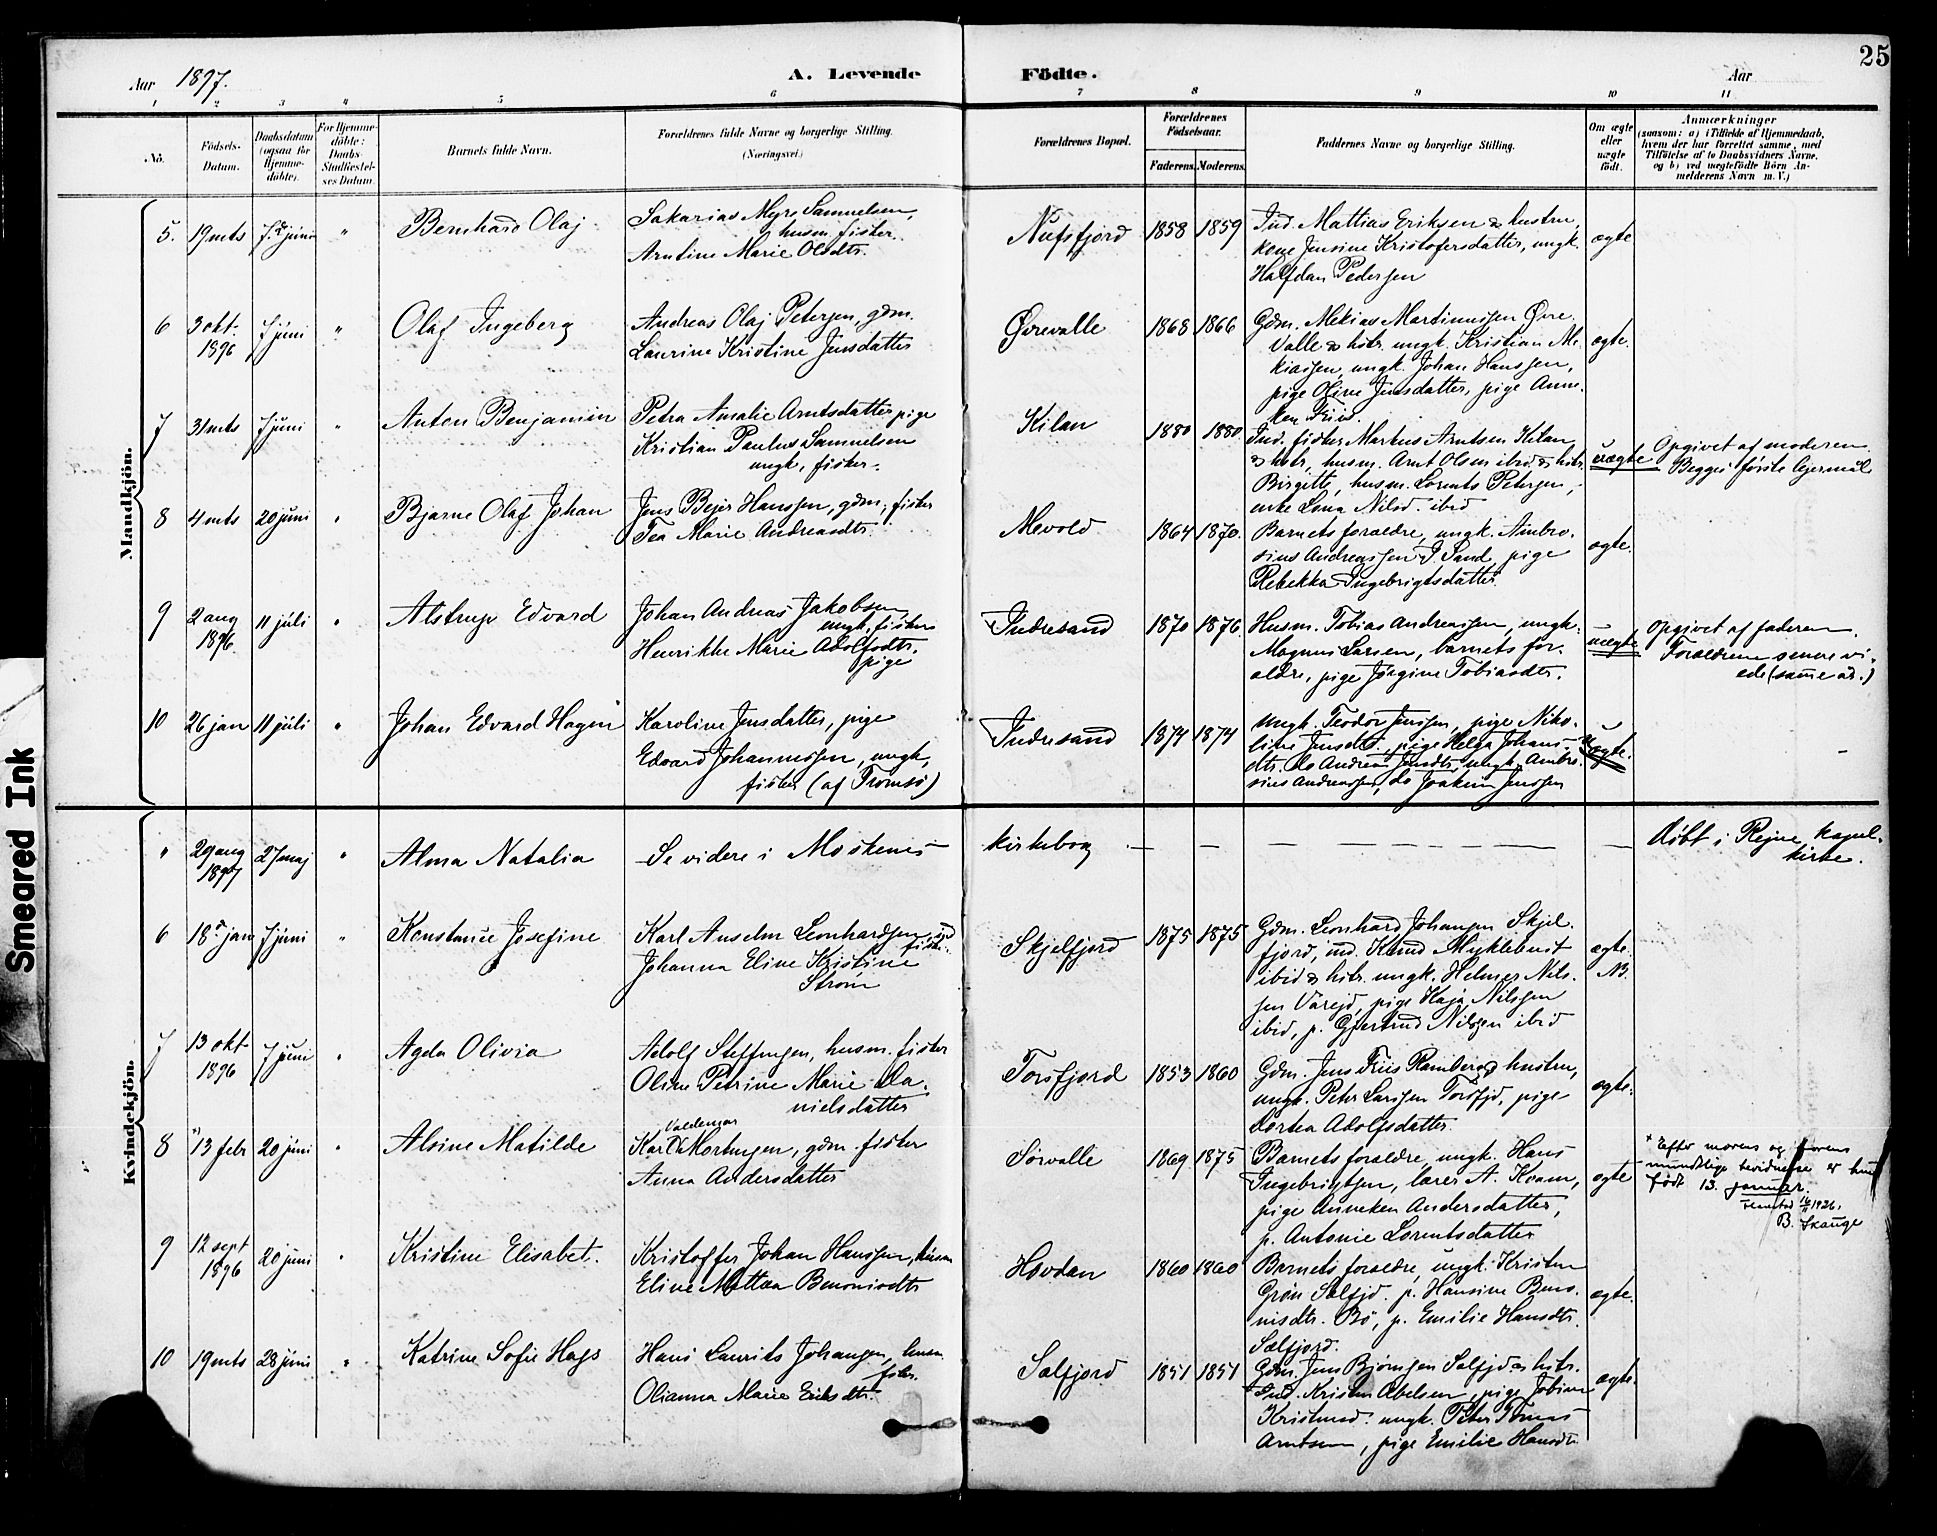 25
Aar 1897.
A. Levende Födte.
Aar
1 2 3 4 5 6 7 8 9 10 11
No.
Födsels-Datum.
Daabsdatum (ogsaa for Hjemme-döbte).
For Hjemme-döbte: Daabs-Stadfæstel-ses Datum.
Barnets fulde Navn.
Forældrenes fulde Navne og borgerlige Stilling. (Næringsvei.)
Forældrenes Bopæl.
Forældrenes Födselsaar.
Faderens. Moderens.
Faddernes Navne og borgerlige Stilling.
Om ægte eller uægte födt.
Anmærkninger
(saasom: a) i Tilfælde af Hjemmedaab,
hvem der har forrettet samme, med
Tilföielse af to Daabsvidners Navne,
og b) ved uægtefödte Börn An-
melderens Navn m. V.)
Mandkjön.
5. 19 mts 7. juni " Bernhard Olaj
Sakarias Myre Samuelsen,
husm. fisker.
Arntine Marie Olsdtr.
Nufsfjord 1858 1859
Ind. Mattias Eriksen & hustru,
kone Jensine Kristofersdatter, ungk.
Halfdan Pedersen
ægte
6 3 okt. 1896 7 juni " Olaf Ingeberg
Andreas Olaj Petersen, gdm.
Laurine Kristine Jensdatter
Øvrevalle 1868 1866
Gdm. Mekias Martinussen Øvre
Valle & hstr. ungk. Kristian Me-
kiassen, ungk. Johan Hanssen,
pige Oline Jensdatter, pige Anne-
ken Friis
ægte.
7 31 mts 7 juni " Anton Benjamin
Petra Amalie Arntsdatter pige
Kristian Paulus Samuelsen
ungk., fisker.
Kilan 1880 1880
Ind. fisker Markus Arntsen Kilan
& hstr, husm. Arnt Olsen ibid & hstr.
Birgitte, husm. Lorents Petersen,
enke Lena Nilsd. ibid
uægte
Opgivet af moderen.
Begges første lejermål
8 4 mts 20 juni " Bjarne Olaf Johan
Jens Bejer Hanssen, gdm., fisker
Tea Marie Andreasdtr.
Mevold 1864 1870.
Barnets foraeldre, ungk. Ambro-
sius Andreassen I. Sand, pige
Rebekka Ingebrigtsdatter.
ægte.
9 2 aug 1896. 11 júli " Alstrup Edvard
Johan Andreas Jakobsen
ungk. fisker
Henrikke Marie Adolfsdtr.
pige
Indresand 1870 1876
Husm. Tobias Andreassen, ungk.
Magnus Larsen, barnets for-
aeldre, pige Jørgine Tobiasdtr.
uægte
Opgivet af faderen.
Foraeldrene senere vi-
ede (samme år.)
10 26 jan 11 júli " Johan Edvard Hagen
Karoline Jensdatter, pige
Edvard Johannessen, ungk,
fisker (af Tromsø)
Indresand 1874 1874
Ungk. Teodor Jenssen, pige Niko-
line Jensdtr., pige Helga Johans-
dtr. do Andrea Jensdtr, ungk. Ambro-
sius Andreassen, do Joakim Jenssen
uægte.
Kvindekjön.
" 29 aug 1897 27 maj " Alma Natalia
Se videre i Moskenes kirkebog
døbt i Rejne kapel-
kirke.
6 18 jan 7 juni " Konstance Josefine
Karl Anselm Leonhardsen, ind
fisker.
Johanna Eline Kristine
Strøm
Skjelfjord 1875 1875
Gdm. Leonhard Johansen Skjel-
fjord, ind. Knud Myklebust
ibid & hstr. ungk. Helmer Nils-
sen Varejd, pige Kaja Nilssen
ibid, p. Gjertrud Nilssen ibid
ægte.
NB.
7 13 okt 1896 7 juni " Agda Olivia
Adolf Steffensen, husm. fisker
Oline Petrine Marie Da-
nielsdatter
Torsfjord 1853 1860
Gdm. Jens Friis Ramberg & hustru,
ungk. Peter Larssen Torsfjd, pige
Dortea Adolfsdatter.
ægte.
8 13 febr 20 juni " Alvine Matilde
Valdemar
Karl Mortensen, gdm. fisker
Anna Andersdatter
Sørvalle 1869 1875
Barnets foraeldre, ungk. Hans
Ingebrigtsen, laerer A. Kvam,
pige Anneken Andersdatter,
p. Antonie Lorentsdatter
ægte
* Efter morens og farens
mundtlige bevidnelse er hun
født 13. januar.
Flakstad 1936.
B. Skauge
9 12 sept 1896 20 juni " Kristine Elisabet.
Kristoffer Johan Hanssen, húsm
Eline Mattea Benonisdtr
Hovdan 1860 1860
Barnets foraeldre, ungk. Kristen
Grøn Solfjd. p. Hansine Beno-
nisdtr. Bø, p. Emilie Hansdtr.
Solfjord.
ægte.
10 19 mts 28 juni " Katrine Sofie Hags
Hans Laurits Johansen, husm.
fisker.
Olianna Marie Eriksdtr.
Solfjord 1851 1851
Gdm. Jens Bjørnsen Solfjd & hstr.
Ind. Kristen Abelsen, pige Jobine
Kristensd. ungk. Peter Tomas
Arntsen, pige Emilie Hansdtr.
ægte.
Smeared Ink